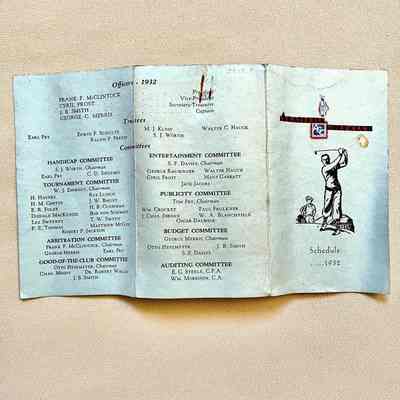 Officers - 1932
FRANK F. McCLINTOCK
CYRIL FROST
J. B. SMITH
GEORGE C. MERRIS
Vice-
Secretary-Treasurer
Captain
Trustees
EARL FRY
EDWIN F. SCHULTZ
RALPH F. PRATT
M. J. KLINE
S. J. WORTH
WALTER C. HAUCK
Committees
HANDICAP COMMITTEE
S. J. WORTH, Chairman
EARL FRY
TOURNAMENT COMMITTEE
W. J. EMMONS, Chairman
H. HAINEY
H. M. GRIFFIN
E. R. FOLEY
DONALD MACKENZIE
LES SWEENEY
P. E. THOMAS
ROY LUNDIE
J. W. BAILEY
H. P. CLOUGHAN
BOB VON SCHMIDT
T. W. SMITH
MATTHEW MCCOY
ROBERT P. JACKSON
ARBITRATION COMMITTEE
FRANK F. McCLINTOCK, Chairman
GEORGE MERRIS
EARL FRY
GOOD-OF-THE-CLUB COMMITTEE
OTTO HEITMEYER, Chairman
CHAS. MERRIS
DR. ROBERT WALD
J. B. SMITH
ENTERTAINMENT COMMITTEE
S. F. DAVIES, Chairman
GEORGE BAUMBAUER
WALTER HAUCK
CYRIL FROST
HANS GARRATT
JACK JACOBS
PUBLICITY COMMITTEE
TOM FRY, Chairman
WM. CROCKET
PAUL FAULKNER
W. A. BLANCHFIELD
OSCAR DALHOUSE
BUDGET COMMITTEE
GEORGE MERRIS, Chairman
OTTO HEITMEYER
J. B. SMITH
S. F. DAVIES
AUDITING COMMITTEE
E. G. STEELE, C.P.A.
WM. MORRISON, C.A.
Schedule
.....1932